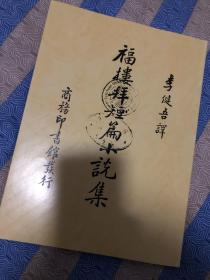 李健吾譯
福樓拜短篇小說集
商務印書館發行